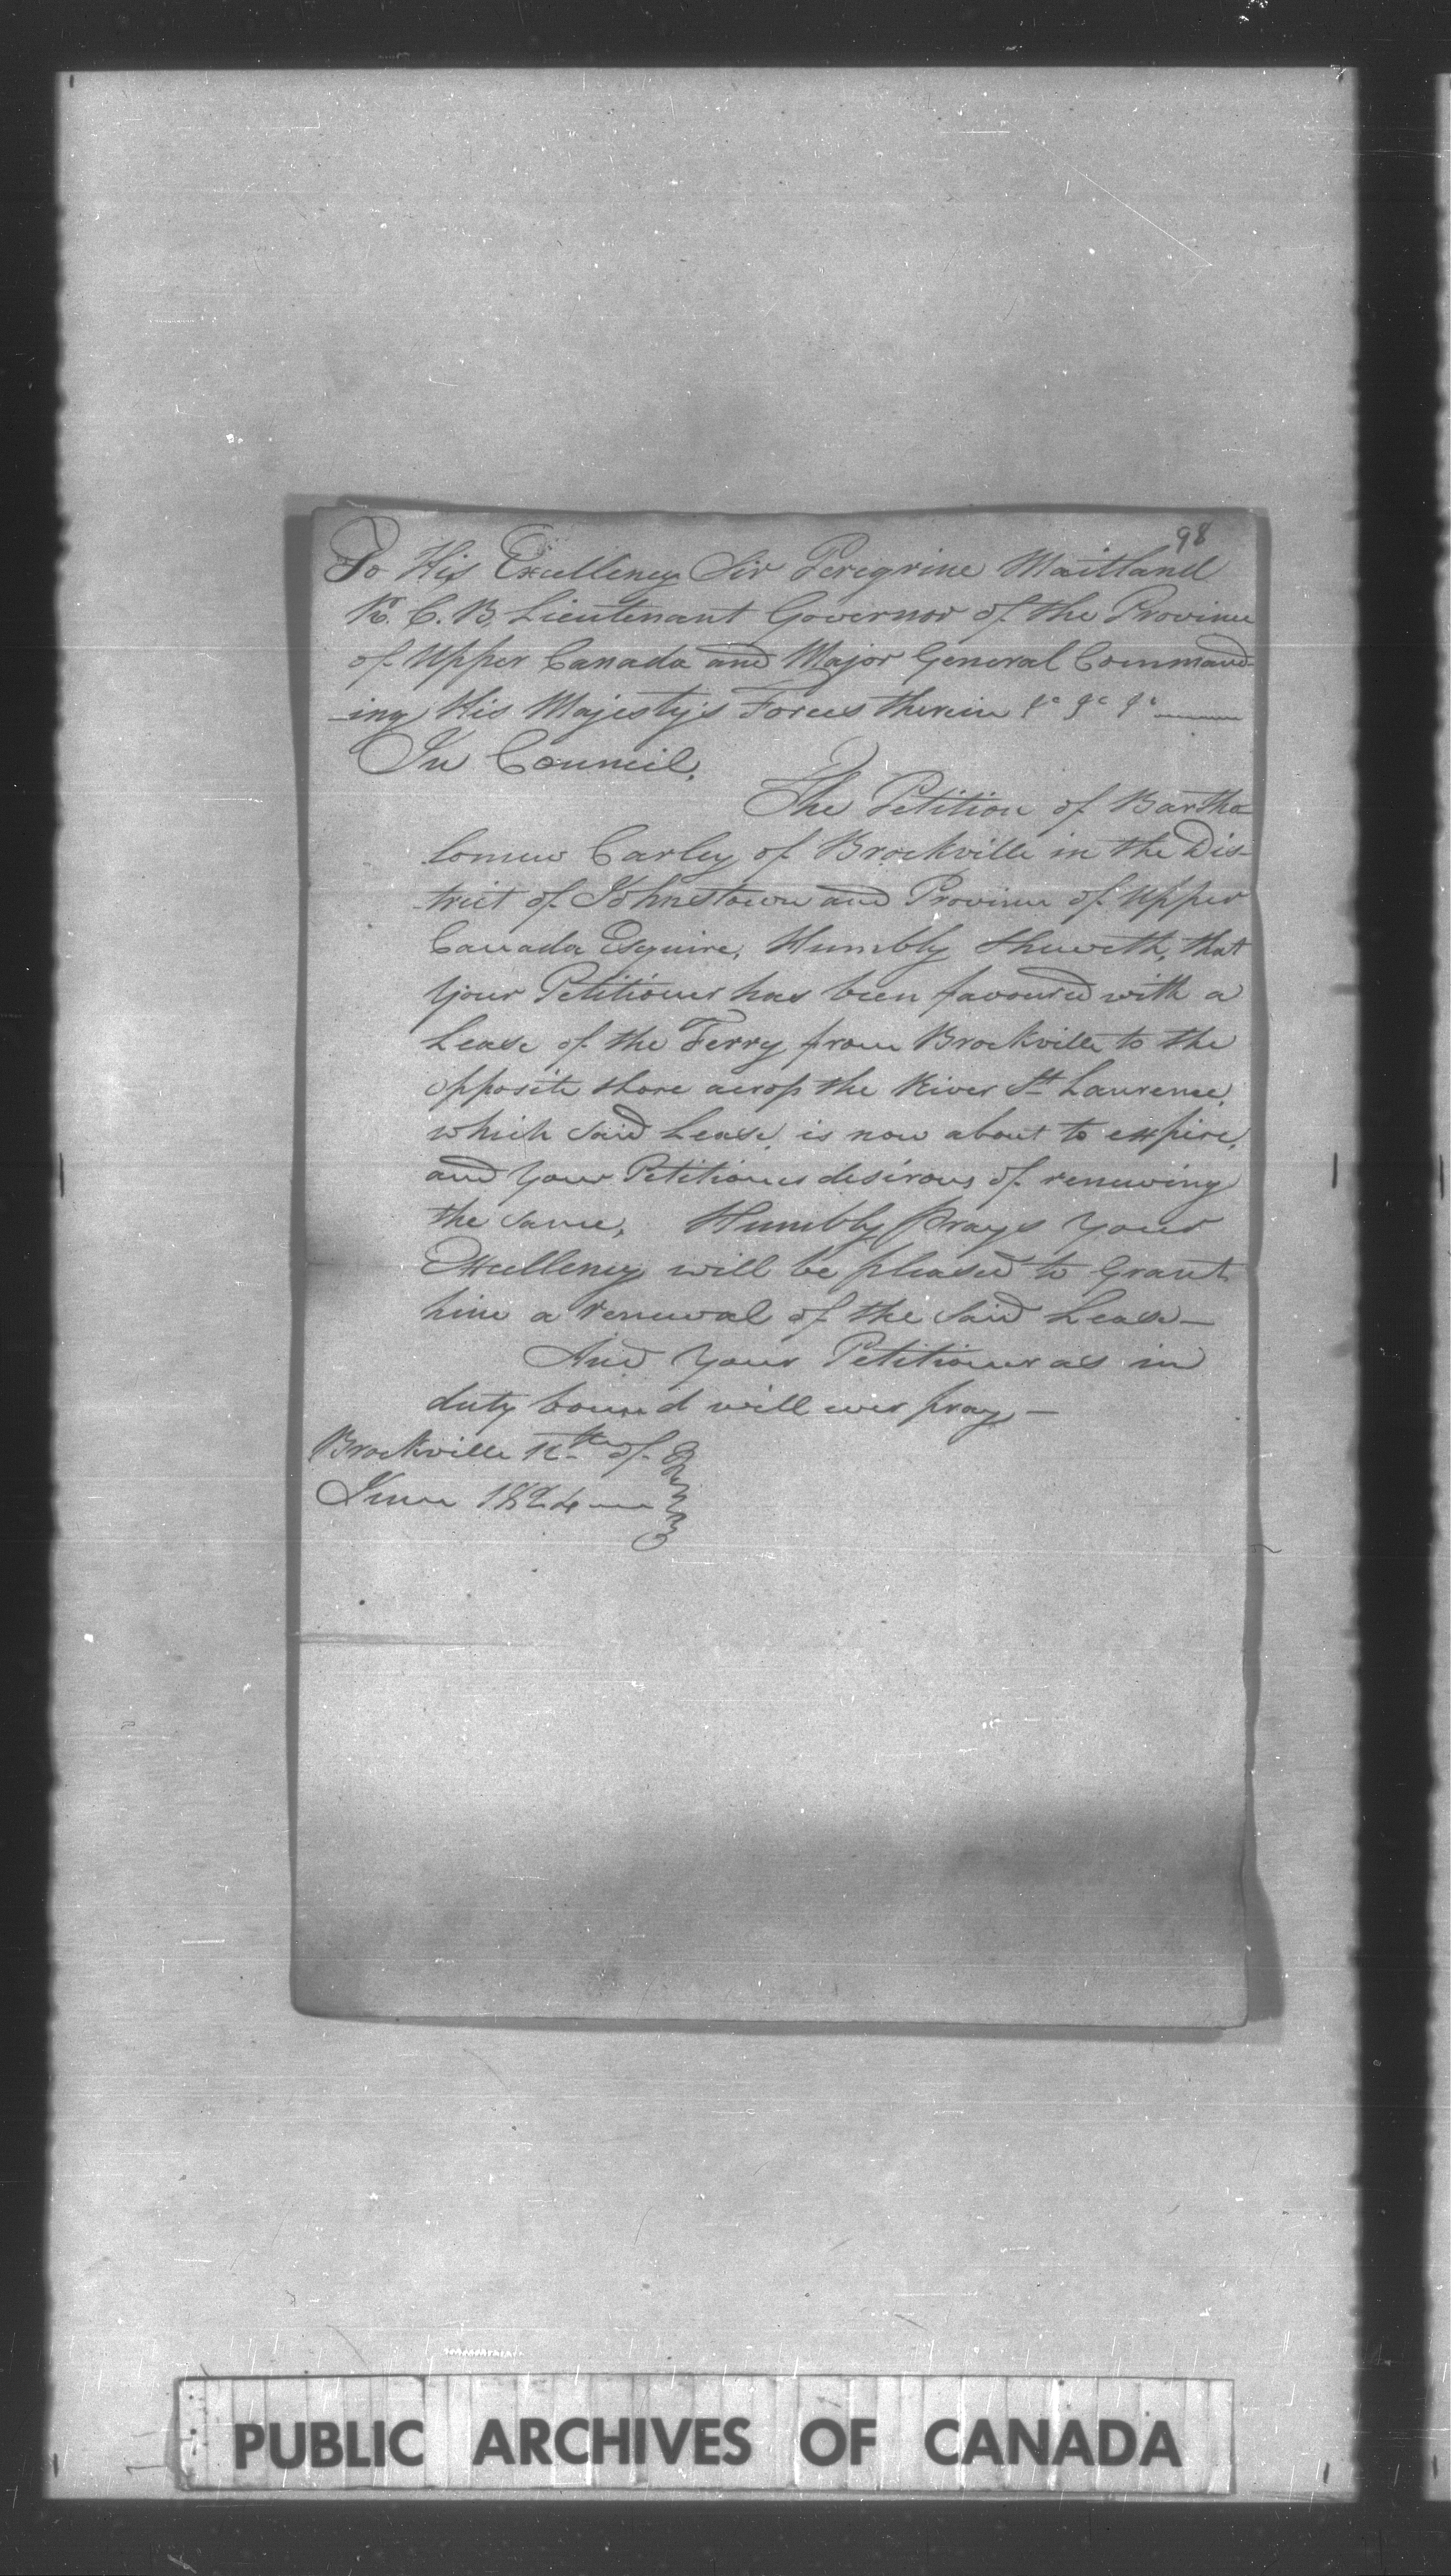 98
To His Excellency Sir Peregrine Maitland
K. C. B. Lieutenant Governor of the Province
of Upper Canada and Major General Command-
-ing His Majesty's Forces therein &c &c &c
In Council.
The Petition of Bartho-
lomew Carley of Brockville in the Dis-
trict of Johnstown and Province of Upper
Canada Esquire, Humbly Sheweth, that
your Petitioner has been favoured with a
Lease of the Ferry from Brockville to the
opposite shore across the River St. Laurence,
which said Lease is now about to expire,
and your Petitioner desirous of renewing
the same, Humbly Prays your
Excellency will be pleased to Grant
him a renewal of the said Lease—
And your Petitioner as in
duty bound will ever pray—
Brockville th of
June 1824
PUBLIC ARCHIVES OF CANADA